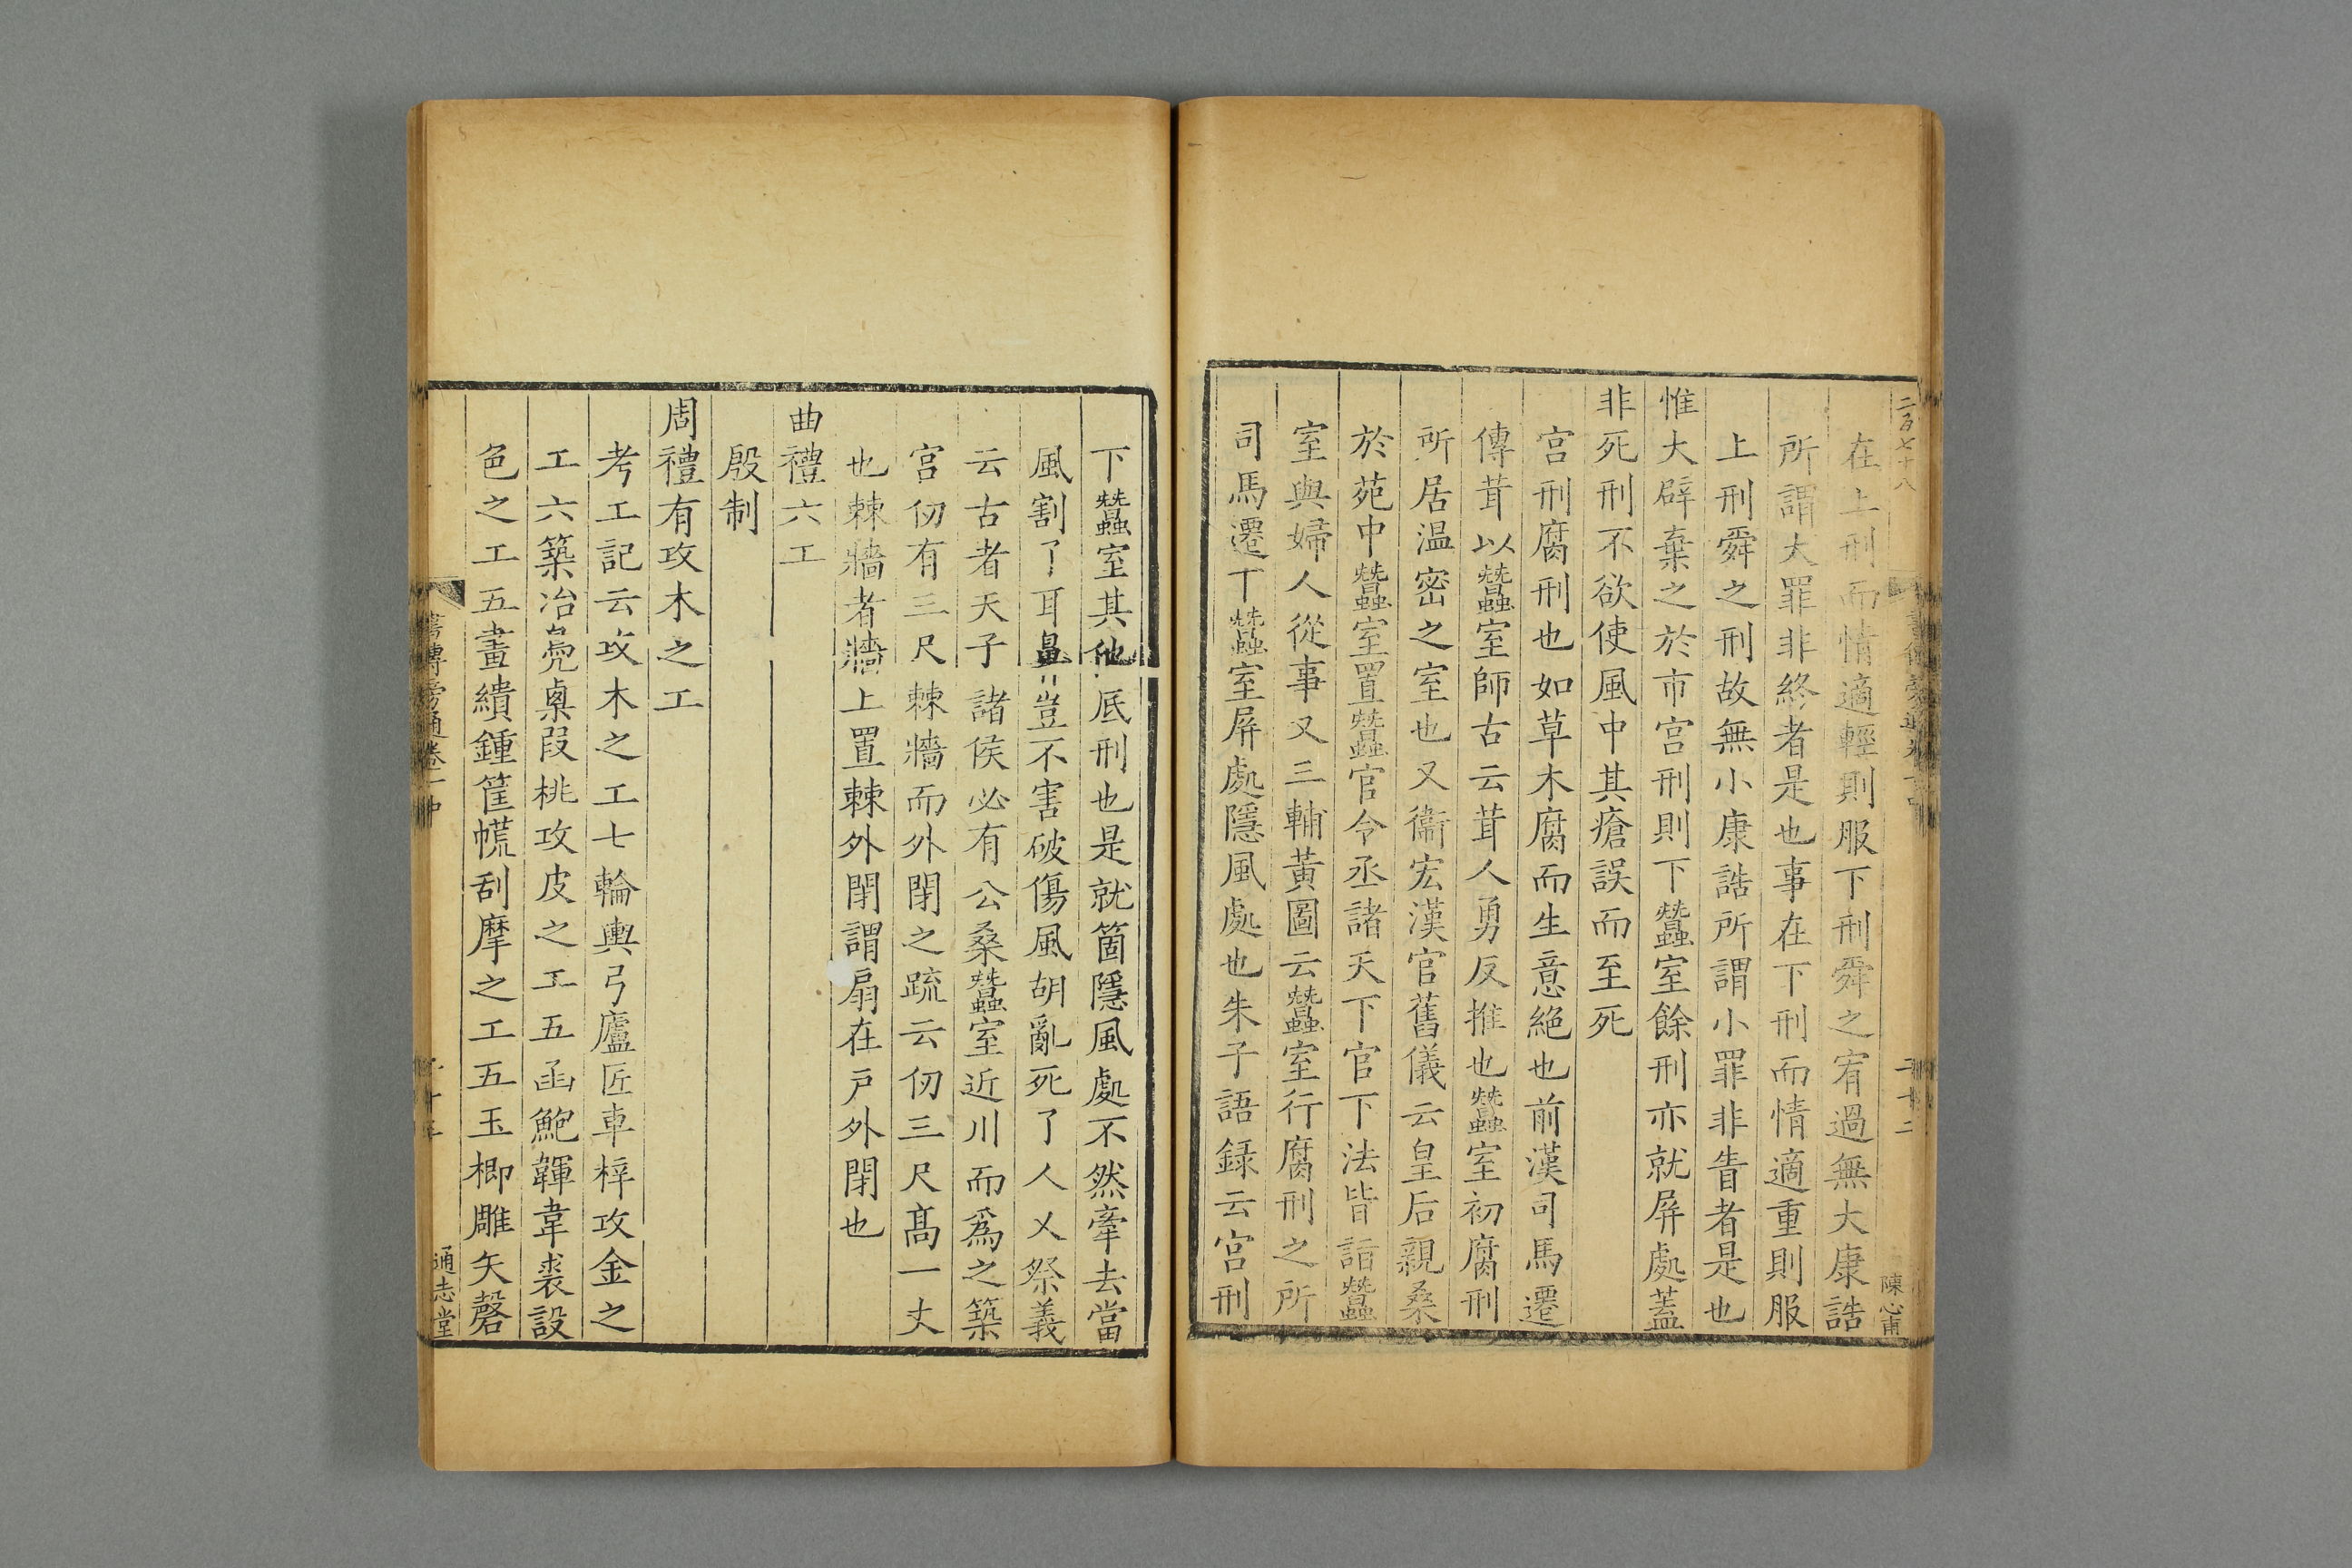 二百七十八
陳心甫
在上刑而情適輕則服下刑舜之宥過無大康誥
所謂大罪非終者是也事在下刑而情適重則服
上刑舜之刑故無小康誥所謂小罪非眚者是也
惟大辟棄之於市宫刑則下蠶室餘刑亦就屏處蓋
非死刑不欲使風中其瘡誤而至死
宫刑腐刑也如草木腐而生意絶也前漢司馬遷
傳茸以蠶室師古云茸人勇反推也蠶室初腐刑
所居温密之室也又衞宏漢官舊儀云皇后親桑
於苑中蠶室置蠶官令丞諸天下官下法皆詣蠶
室與婦人從事又三輔黄圖云蠶室行腐刑之所
司馬遷下蠶室屏處隱風處也朱子語録云宫刑
下蠶室其他底刑也是就箇隱風處不然牽去當
風割了耳鼻豈不害破傷風胡亂死了人乂祭義
云古者天子諸侯必有公桑蠶室近川而爲之築
宫仞有三尺棘牆而外閉之疏云仞三尺髙一丈
也棘牆者牆上置棘外閉謂扇在戸外閉也
曲禮六工
殷制
周禮有攻木之工
考工記云攻木之工七輪輿弓廬匠車梓攻金之
工六築冶鳧㮚段桃攻皮之工五函鮑韗韋裘設
色之工五畫繢鍾筐㡆刮摩之工五玉楖雕矢磬
書傳旁通卷一中
通志堂